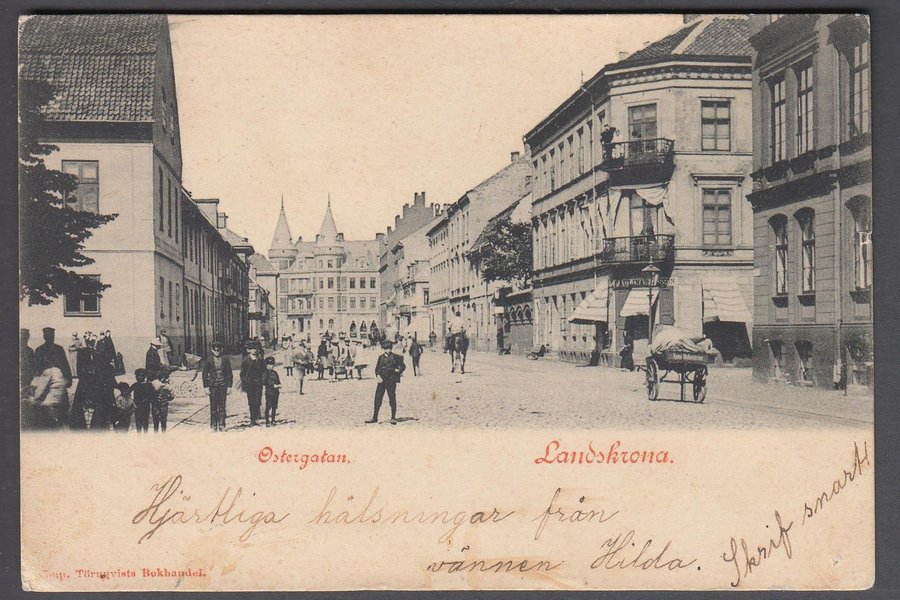 Ostergatan.
Landskrona.
Hjärtliga hälsningar från
vännen Hilda.
Skrif snart!
Imp. Törnqvists Bokhandel.